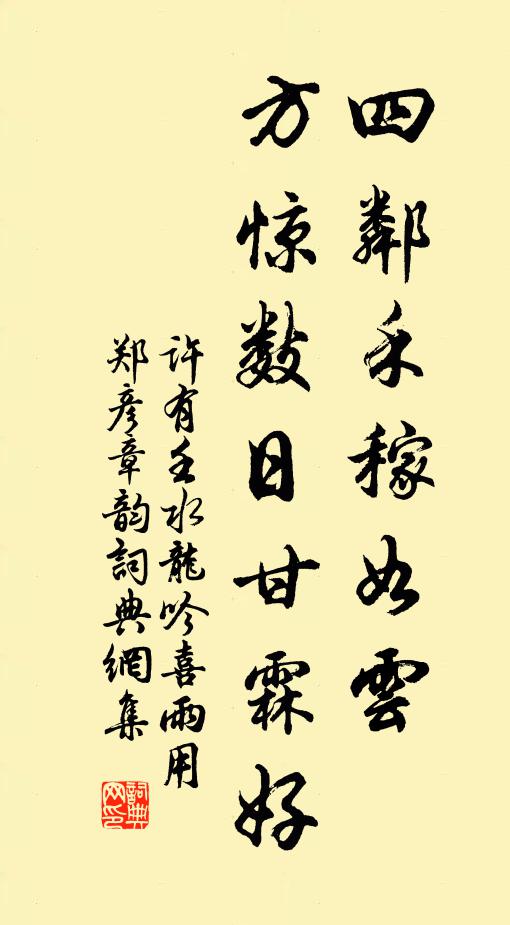 四鄰禾稼如雲
方惊数日甘霖好
許有壬水龍吟喜雨用
郑彦章韵詞典網集
詞典网印